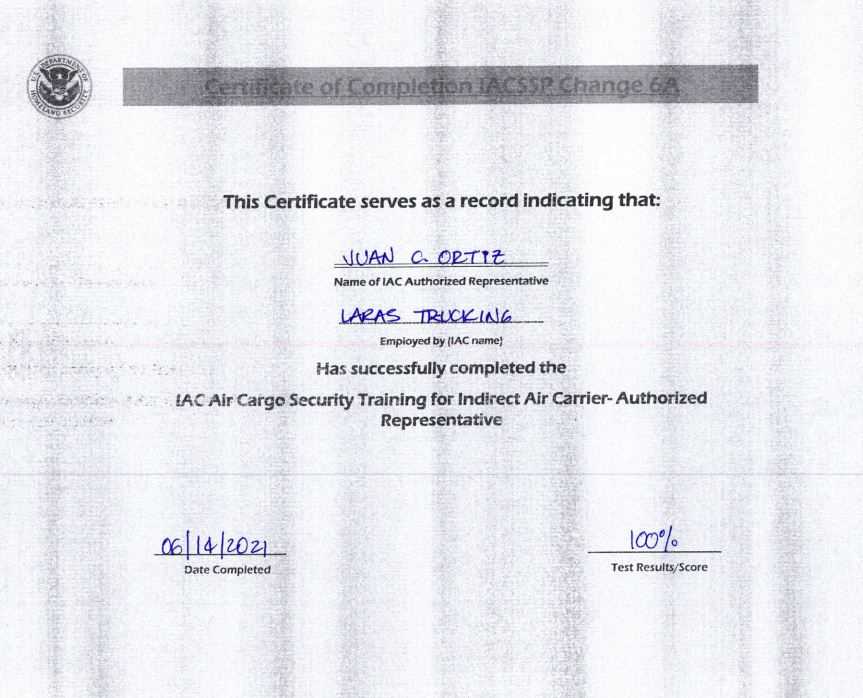 U.S. DEPARTMENT OF HOMELAND SECURITY
Certificate of Completion IACSSP Change 6A
This Certificate serves as a record indicating that:
JUAN C. ORTIZ
Name of IAC Authorized Representative
LARAS TRUCKING
Employed by (IAC name)
Has successfully completed the
IAC Air Cargo Security Training for Indirect Air Carrier- Authorized
Representative
06/14/2021
100%
Date Completed
Test Results/Score